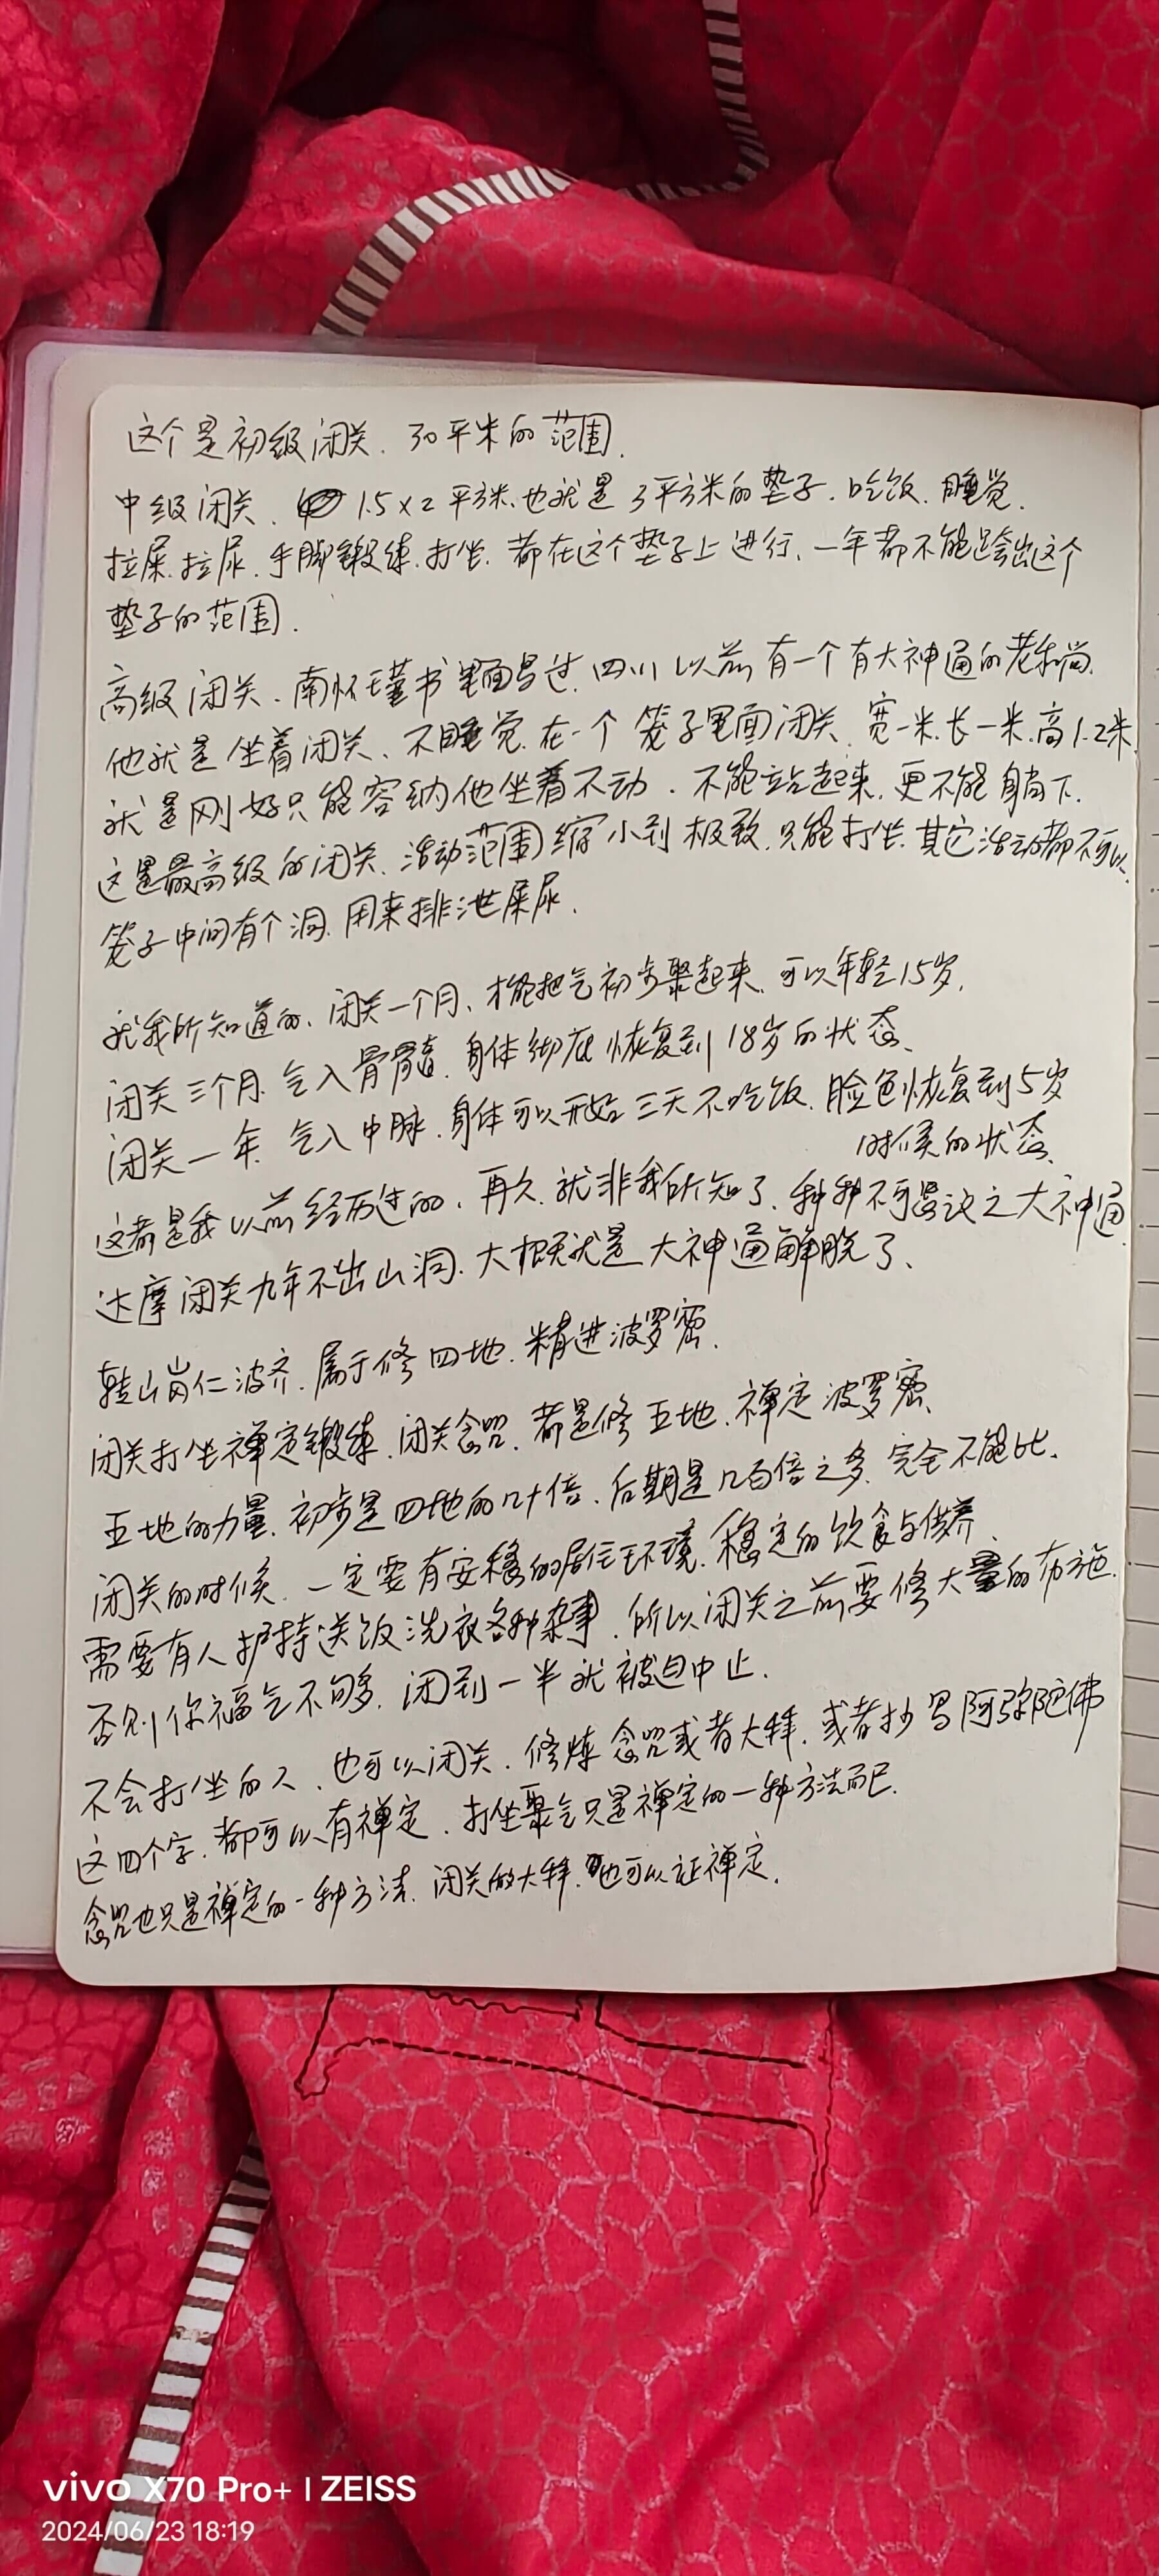 这个是初级闭关、30平米的范围.
中级闭关、1.5×2平方米、也就是3平方米的垫子.吃饭、睡觉、
拉屎、拉尿、手脚锻练、打坐、都在这个垫子上进行、一年都不能跨出这个
垫子的范围.
高级闭关、南怀瑾书里面写过、四川以前有一个有大神通的老和尚、
他就是坐着闭关、不睡觉、在一个笼子里面闭关、宽一米、长一米、高1.2米、
就是刚好只能容纳他坐着不动.不能站起来、更不能躺下.
这是最高级的闭关、活动范围缩小到极致、只能打坐、其它活动都不可以、
笼子中间有个洞、用来排泄屎尿.
就我所知道的、闭关一个月、才能把气初步聚起来、可以年轻15岁、
闭关三个月、气入骨髓、身体彻底恢复到18岁的状态、
闭关一年、气入中脉、身体可以开始三天不吃饭、脸色恢复到5岁
时候的状态、
这都是我以前经历过的、再久、就非我所知了、种种不可思议之大神通、
达摩闭关九年不出山洞、大概就是大神通解脱了、
转山岗仁波齐、属于修四地、精进波罗密、
闭关打坐禅定锻练、闭关念咒、都是修五地、禅定波罗密、
五地的力量、初步是四地的几十倍、后期是几百倍之多、完全不能比、
闭关的时候、一定要有安稳的居住环境、稳定的饮食与供养、
需要有人护持送饭洗衣各种杂事、所以闭关之前要修大量的布施、
否则你福气不够多、闭到一半就被迫中止.
不会打坐的人、也可以闭关、修炼念咒或者大拜、或者抄写阿弥陀佛
这四个字、都可以有禅定、打坐聚气只是禅定的一种方法而已.
念咒也只是禅定的一种方法、闭关的大拜、也可以证禅定、
vivo X70 Pro+ | ZEISS
2024/06/23 18:19